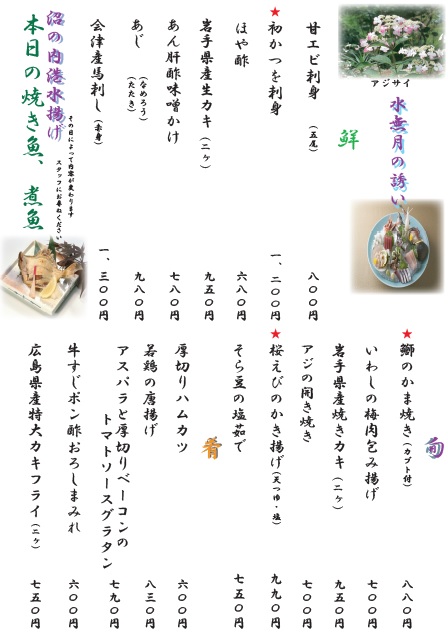 アジサイ
水無月の誘い
鮮
甘エビ刺身（五尾） 八〇〇円
★初かつを刺身 一、二〇〇円
ほや酢 六八〇円
岩手県産生カキ（二ヶ） 九五〇円
あん肝酢味噌かけ 七八〇円
あじ（なめろう）（たたき） 九八〇円
会津産馬刺し（赤身） 一、三〇〇円
その日によって内容が変わります
スタッフにお尋ねください
沼の内港水揚げ
本日の焼き魚、煮魚
旬
★鰤のかま焼き（カブト付） 八八〇円
いわしの梅肉包み揚げ 七〇〇円
岩手県産焼きカキ（二ヶ） 九五〇円
アジの開き焼き 七〇〇円
★桜えびのかき揚げ（天つゆ・塩） 九九〇円
そら豆の塩茹で 七五〇円
肴
厚切りハムカツ 六〇〇円
若鶏の唐揚げ 八三〇円
アスパラと厚切りベーコンの
トマトソースグラタン 七九〇円
牛すじポン酢おろしまみれ 六〇〇円
広島県産特大カキフライ（二ヶ） 七五〇円